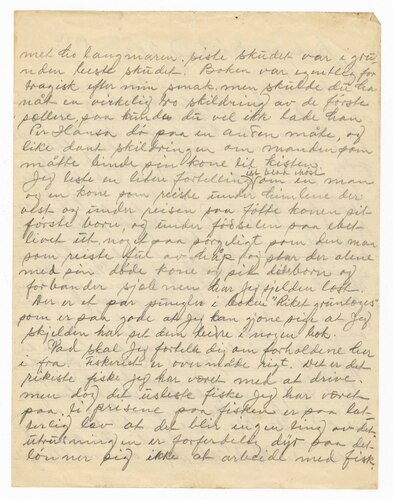 met ho langmaren. siste skudet var i grun
nden beste skudet. Boken var egentleg for
tragisk efter min smak men skulde du ha
nåt en virkelig tro skildring av de første
settere, paa kunde du vel ikk lade han
Per Hansa dø paa en anden måte, og
like dant skildringen om manden som
måtte binde sin kone til kisten.
Jeg leste en liden fortelling om en man
og en kone som reiste under himlene der
vest og under reisen paa fötte konen sit
første born, og under fösselen paa ebet
livet ut, noget paa sörgeligt som den man
som reiste ful av håp og står der alene
med sin döde kone og sit nöborn og
forbander sjelmen har jeg sjelden lest
Der er et par singler i boken "Riket grunlegges"
som er saa gode at jeg kan gjöre sige at jeg
skjelden har set dem bedre i nogen bok.
Hvad skal jeg fortelle dig om forholdene her
i fra. Fiskeriet er overmåte rigt. Det er det
rikeste fiske jeg har været med at drive.
men dog det usleste fiske jeg har været
paa. Ti prisene paa fisken er paa lat-
terlig lav at det blir ingen ting av det
utrustningen er forferdelig dyr saa det
lönner sig ikke at arbeide med fisk.